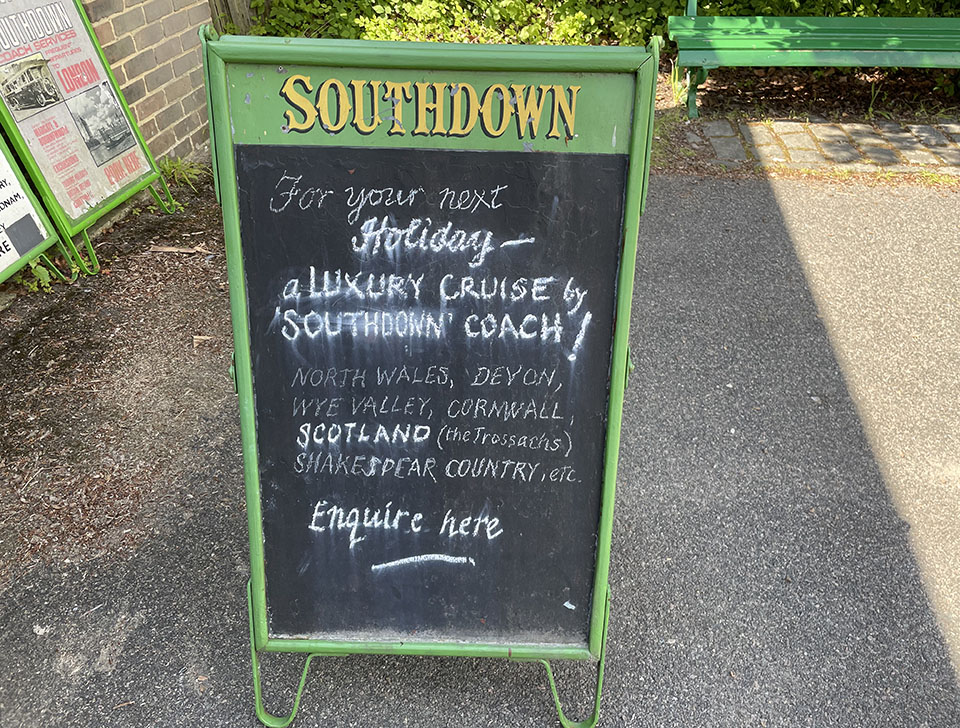 SOUTHDOWN
For your next
Holiday —
a LUXURY CRUISE by
'SOUTHDOWN' COACH!
NORTH WALES, DEVON,
WYE VALLEY, CORNWALL,
SCOTLAND (the Trossachs)
SHAKESPEAR COUNTRY, etc.
Enquire here
SOUTHDOWN
COACH SERVICES
LONDON